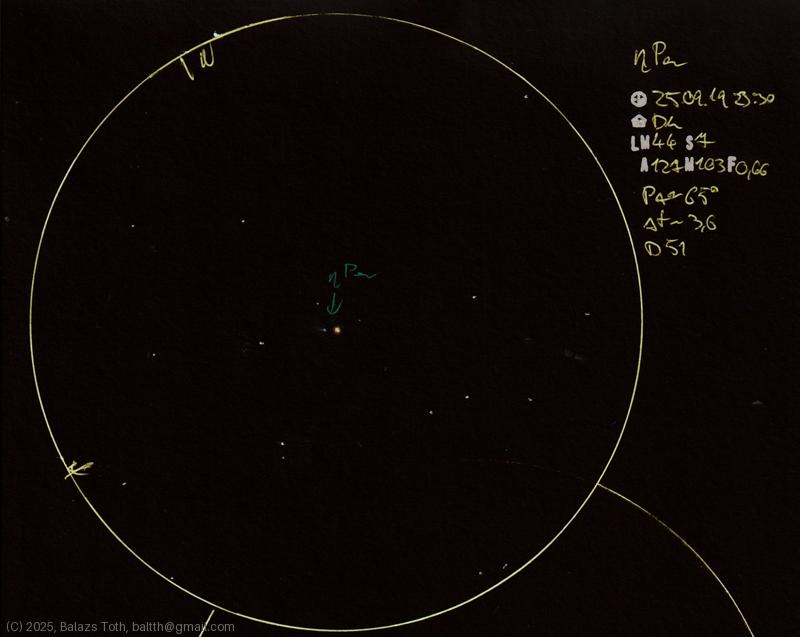 N
η Per
25.09.19 23:30
Dk
LM 4.6 S 7
A 127 M 103 F 0,66
PA ~ 65°
Δf ~ 3,6
D 51
η Per
(C) 2025, Balazs Toth, baltth@gmail.com